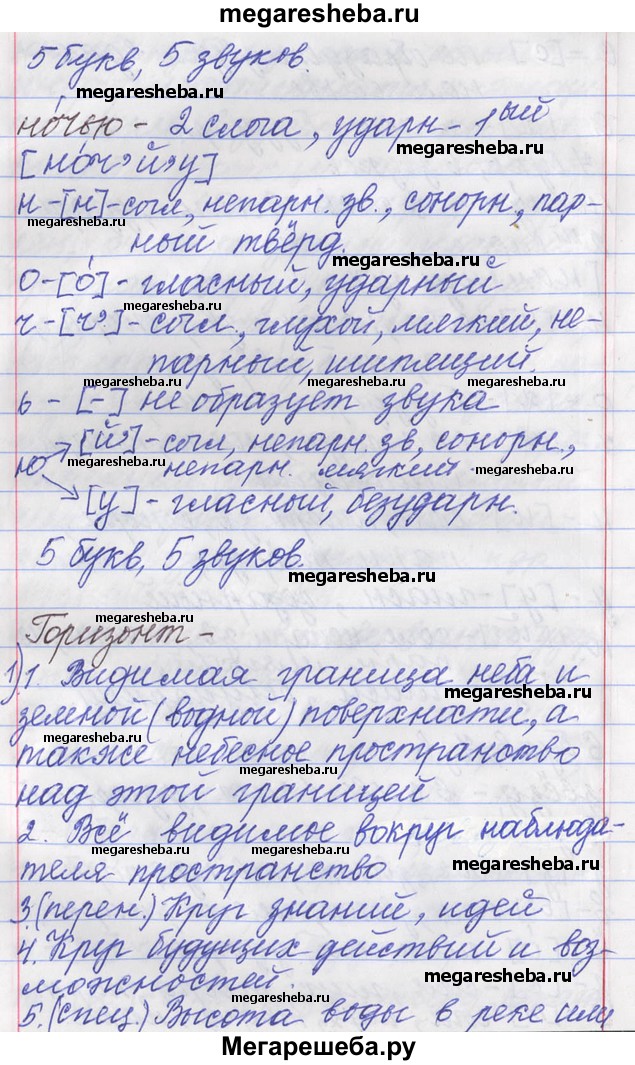 megaresheba.ru
5 букв, 5 звуков.
megaresheba.ru
но́чью - 2 слога, ударн - 1ый
megaresheba.ru
[но́ч'й'у]
н - [н] - согл, непарн. зв., сонорн., пар-
megaresheba.ru
ный твёрд.
megaresheba.ru
о - [о́] - гласный, ударный
megaresheba.ru
ч - [ч'] - согл., глухой, мягкий, не-
парный, шипящий.
megaresheba.ru megaresheba.ru
ь - [-] не образует звука
[й'] - согл, непарн. зв, сонорн.,
megaresheba.ru
ю непарн. мягкий.
megaresheba.ru
[у] - гласный, безударн.
5 букв, 5 звуков.
megaresheba.ru
megaresheba.ru
Горизонт -
1) 1. Видимая граница неба и
megaresheba.ru
земной (водной) поверхности, а
megaresheba.ru
также небесное пространство
megaresheba.ru
над этой границей
2. Всё видимое вокруг наблюда-
megaresheba.ru megaresheba.ru
теля пространство
megaresheba.ru
3. (перен.) Круг знаний, идей
4. Круг будущих действий и воз-
megaresheba.ru
можностей.
megaresheba.ru
5. (спец.) Высота воды в реке или
Мегарешеба.ру